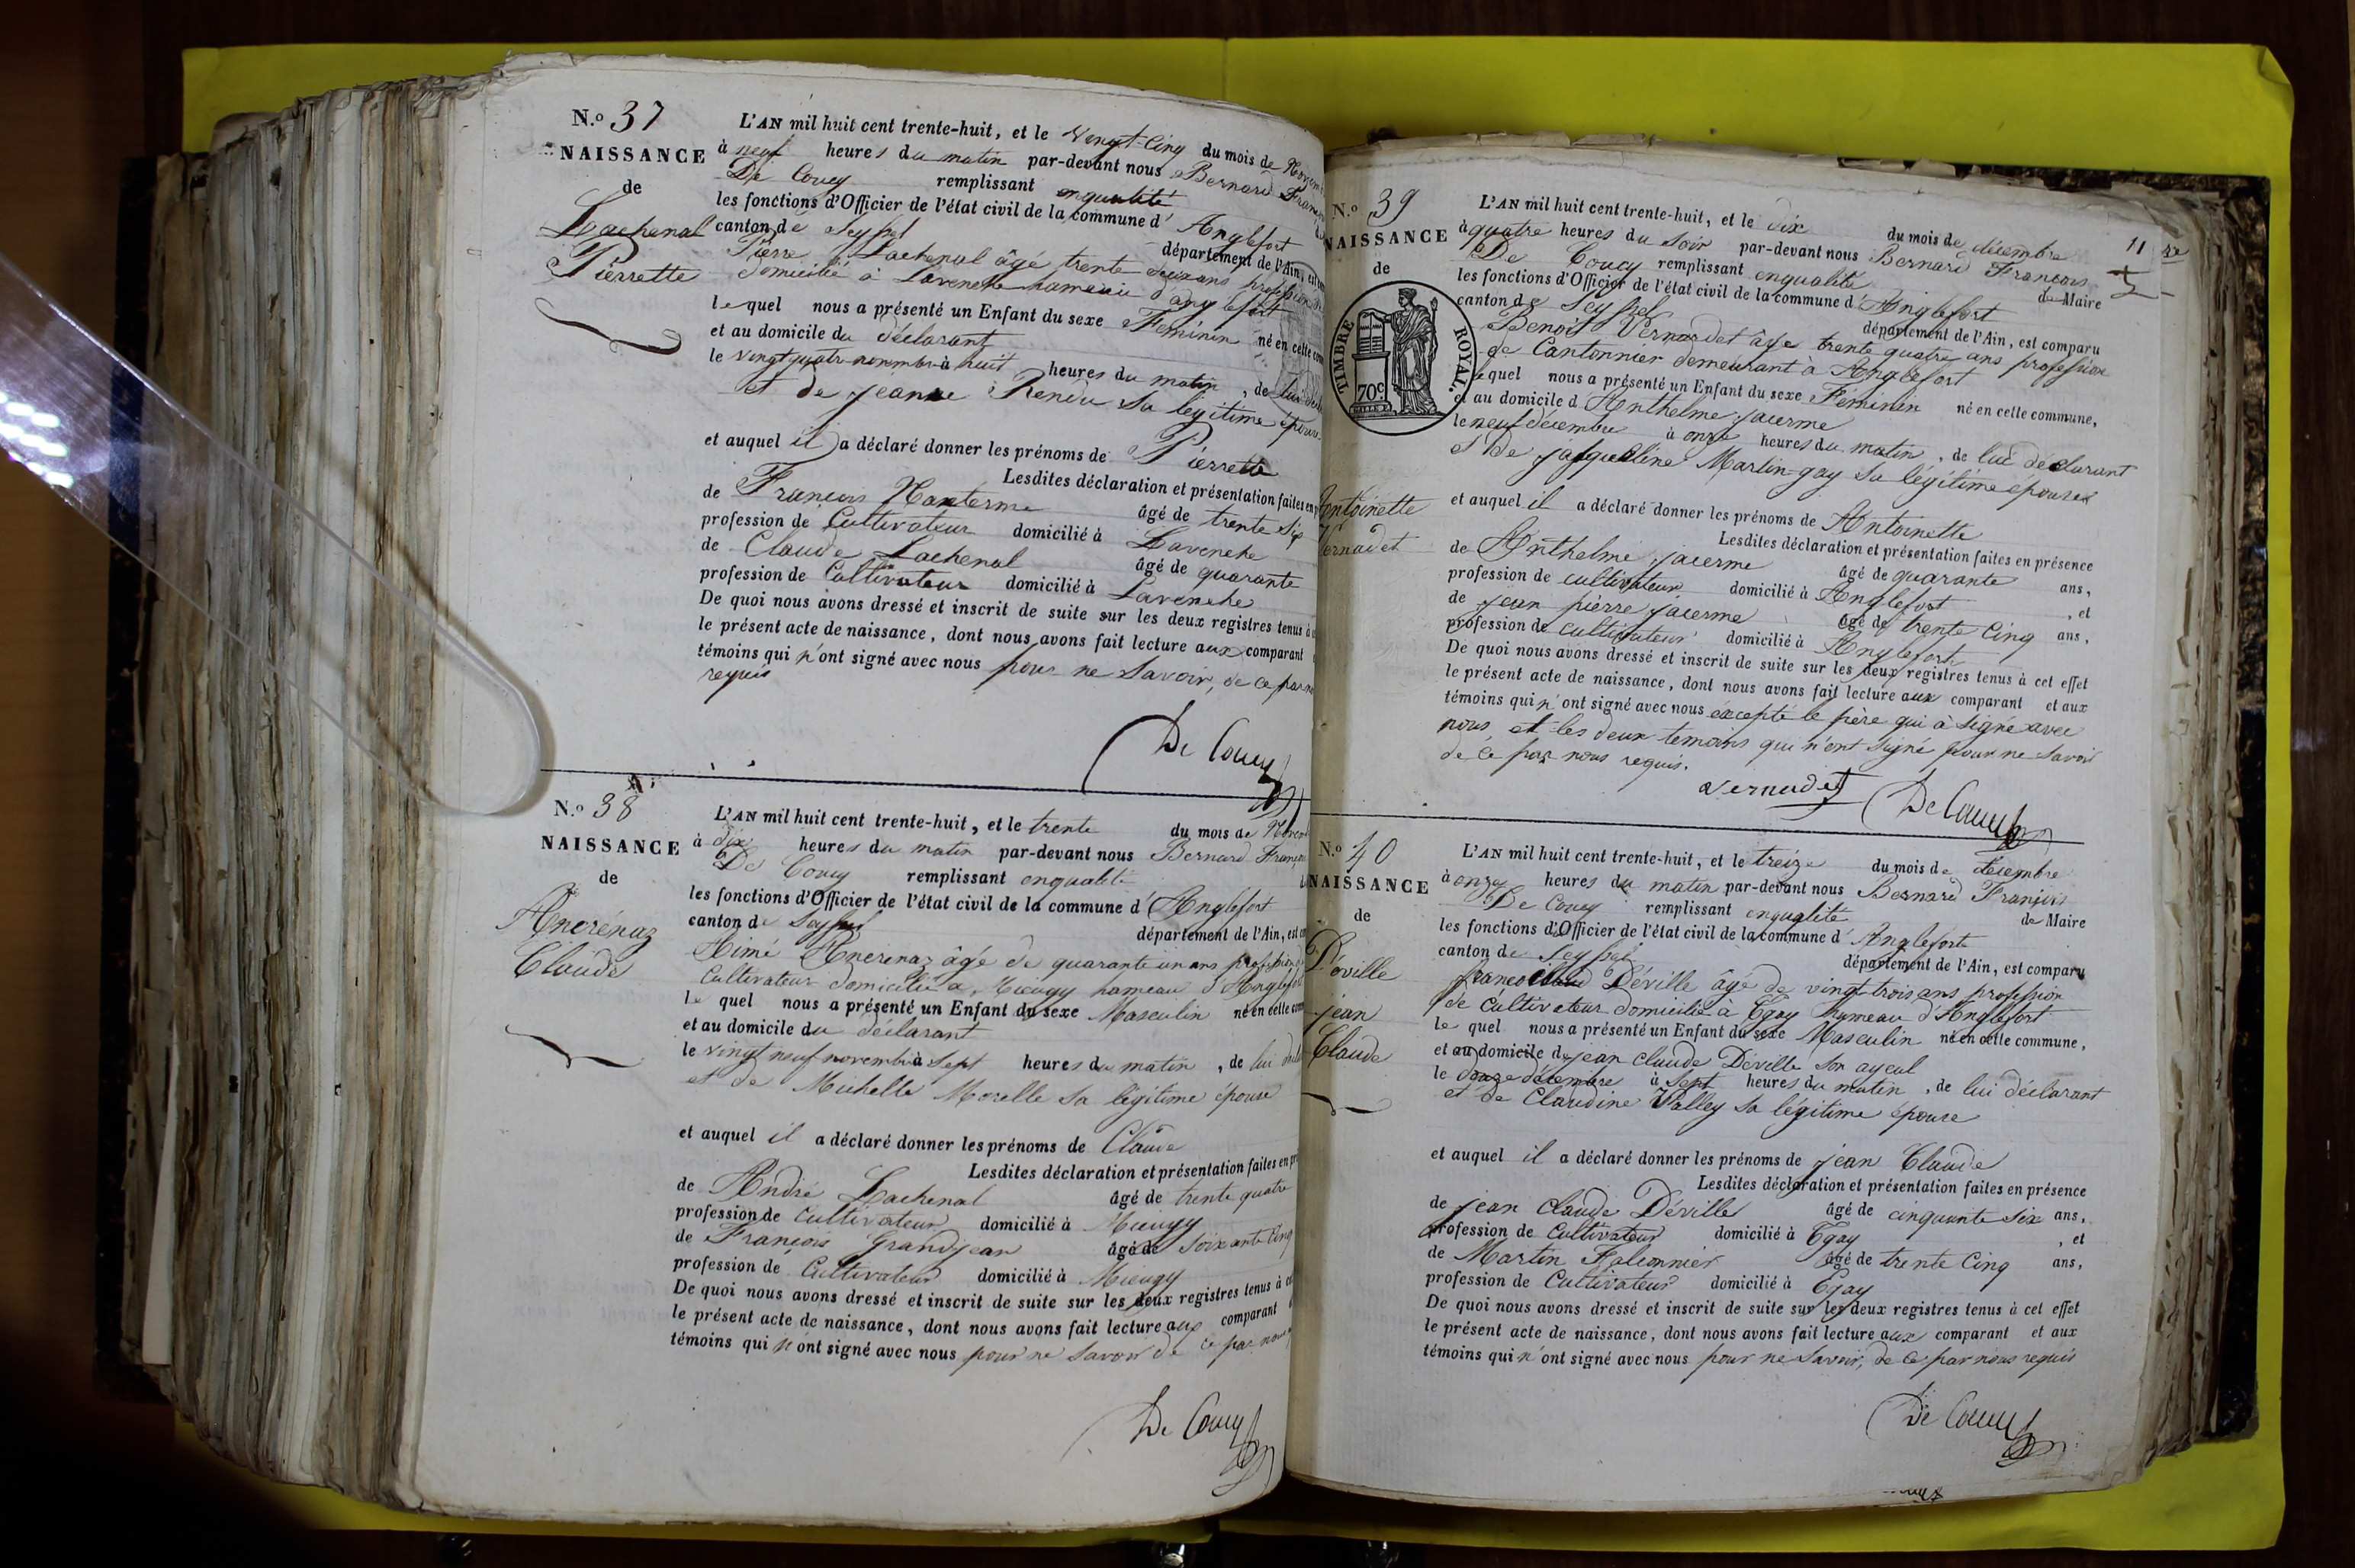 N.º 37
NAISSANCE
de
Lachenal
Pierrette
L'AN mil huit cent trente-huit, et le Vingt-Cinq du mois de
à neuf heures du matin par-devant nous Bernard
De Coucy remplissant enqualité
les fonctions d'Officier de l'état civil de la commune d' Anglefort
canton de Seyssel département de l'Ain,
Pierre Lachenal âgé trente deux ans
domicilié à Lavenche hameau d'anglefort
le quel nous a présenté un Enfant du sexe Féminin né en cette
et au domicile du déclarant
le vingt quatre novembre à huit heures du matin, de lui
et de jeanne Rendu sa légitime épouse
et auquel il a déclaré donner les prénoms de Pierrette
Lesdites déclaration et présentation faites en
de François Nanterme âgé de trente six
profession de Cultivateur domicilié à Lavenche
de Claude Lachenal âgé de quarante
profession de Cultivateur domicilié à Lavenche
De quoi nous avons dressé et inscrit de suite sur les deux registres tenus à
le présent acte de naissance, dont nous avons fait lecture aux comparant
témoins qui n'ont signé avec nous pour ne Savoir, de ce par
requis
De Coucy
N.º 38
NAISSANCE
de
Ancrénaz
Claude
L'AN mil huit cent trente-huit, et le trente du mois de
à dix heures du matin par-devant nous Bernard
De Coucy remplissant enqualité
les fonctions d'Officier de l'état civil de la commune d' Anglefort
canton de Seyssel département de l'Ain, est
Aimé Ancrenaz âgé de quarante un ans profession
Cultivateur domicilié à Mieugy hameau d'Anglefort
le quel nous a présenté un Enfant du sexe Masculin né en cette
et au domicile du déclarant
le vingt neuf novembre à Sept heures du matin, de lui
et de Michelle Morelle sa légitime épouse
et auquel il a déclaré donner les prénoms de Claude
Lesdites déclaration et présentation faites en
de André Lachenal âgé de trente quatre
profession de Cultivateur domicilié à Mieugy
de François Grandjean âgé de soixante Cinq
profession de Cultivateur domicilié à Mieugy
De quoi nous avons dressé et inscrit de suite sur les deux registres tenus à
le présent acte de naissance, dont nous avons fait lecture aux comparant
témoins qui n'ont signé avec nous pour ne Savoir de ce par nous
De Coucy
11
N.º 39
NAISSANCE
de
TIMBRE ROYAL.
70c
Antoinette
Vernadet
L'AN mil huit cent trente-huit, et le dix du mois de décembre
à quatre heures du Soir par-devant nous Bernard François
De Coucy remplissant enqualité de Maire
les fonctions d'Officier de l'état civil de la commune d' Anglefort
canton de Seyssel département de l'Ain, est comparu
Benoît Vernadet âge trente quatre ans profession
de Cantonnier demeurant à Anglefort
le quel nous a présenté un Enfant du sexe Féminin né en cette commune,
et au domicile d Anthelme jacerme
le neuf décembre à onze heures du matin, de lui déclarant
et de jacqueline Martin-gay sa légitime épouse
et auquel il a déclaré donner les prénoms de Antoinette
Lesdites déclaration et présentation faites en présence
de Anthelme jacerme âgé de quarante ans,
profession de cultivateur domicilié à Anglefort, et
de jean pierre jacerme âgé de trente Cinq ans,
profession de cultivateur domicilié à Anglefort
De quoi nous avons dressé et inscrit de suite sur les deux registres tenus à cet effet
le présent acte de naissance, dont nous avons fait lecture aux comparant et aux
témoins qui n'ont signé avec nous éxcepté le père qui à signé avec
nous, et les deux temoins qui n'ont signé pour ne Savoir
de ce par nous requis.
Vernadet De Coucy
N.º 40
NAISSANCE
de
Déville
jean
Claude
L'AN mil huit cent trente-huit, et le treize du mois de décembre
à onze heures du matin par-devant nous Bernard François
De Coucy remplissant enqualité de Maire
les fonctions d'Officier de l'état civil de la commune d' Anglefort
canton de Seyssel département de l'Ain, est comparu
Déville âgé de vingt trois ans profession
de Cultivateur domicilié à Egay hameau d'Anglefort
le quel nous a présenté un Enfant du sexe Masculin né en cette commune,
et au domicile de jean claude Déville son ayeul
le décembre à Sept heures du matin, de lui déclarant
et de Claudine Valley sa légitime épouse
et auquel il a déclaré donner les prénoms de jean Claude
Lesdites déclaration et présentation faites en présence
de jean claude Déville âgé de cinquante six ans,
profession de Cultivateur domicilié à Egay, et
de Martin Falconnier âgé de trente Cinq ans,
profession de Cultivateur domicilié à Egay
De quoi nous avons dressé et inscrit de suite sur les deux registres tenus à cet effet
le présent acte de naissance, dont nous avons fait lecture aux comparant et aux
témoins qui n'ont signé avec nous pour ne Savoir, de ce par nous requis
De Coucy